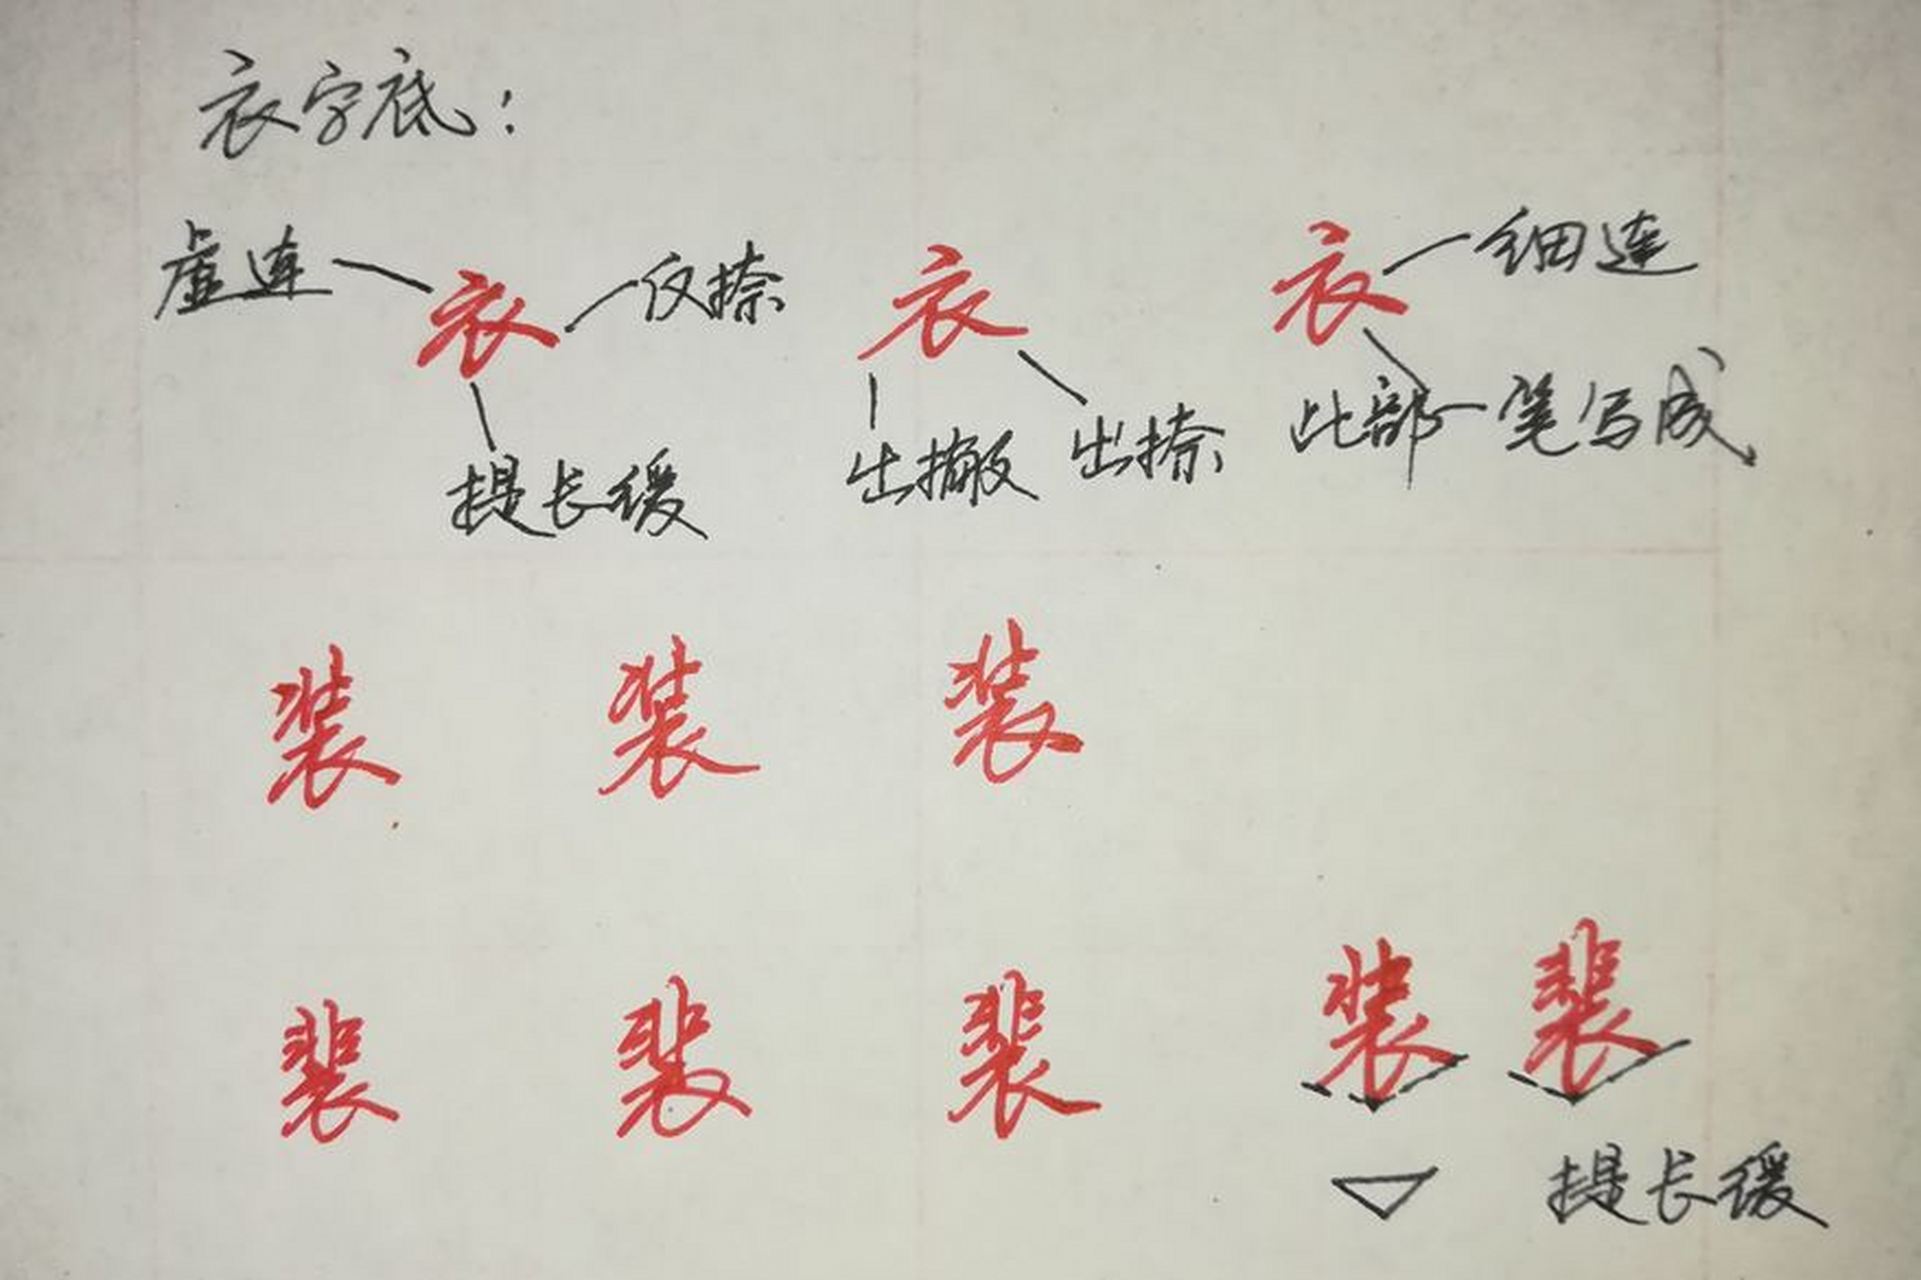 衣字底：
虚连 衣 反捺 衣 衣 细连
提长缓 出撇 出捺 此部一笔写成
装 装 装
裴 裴 裴 装 裴
提长缓